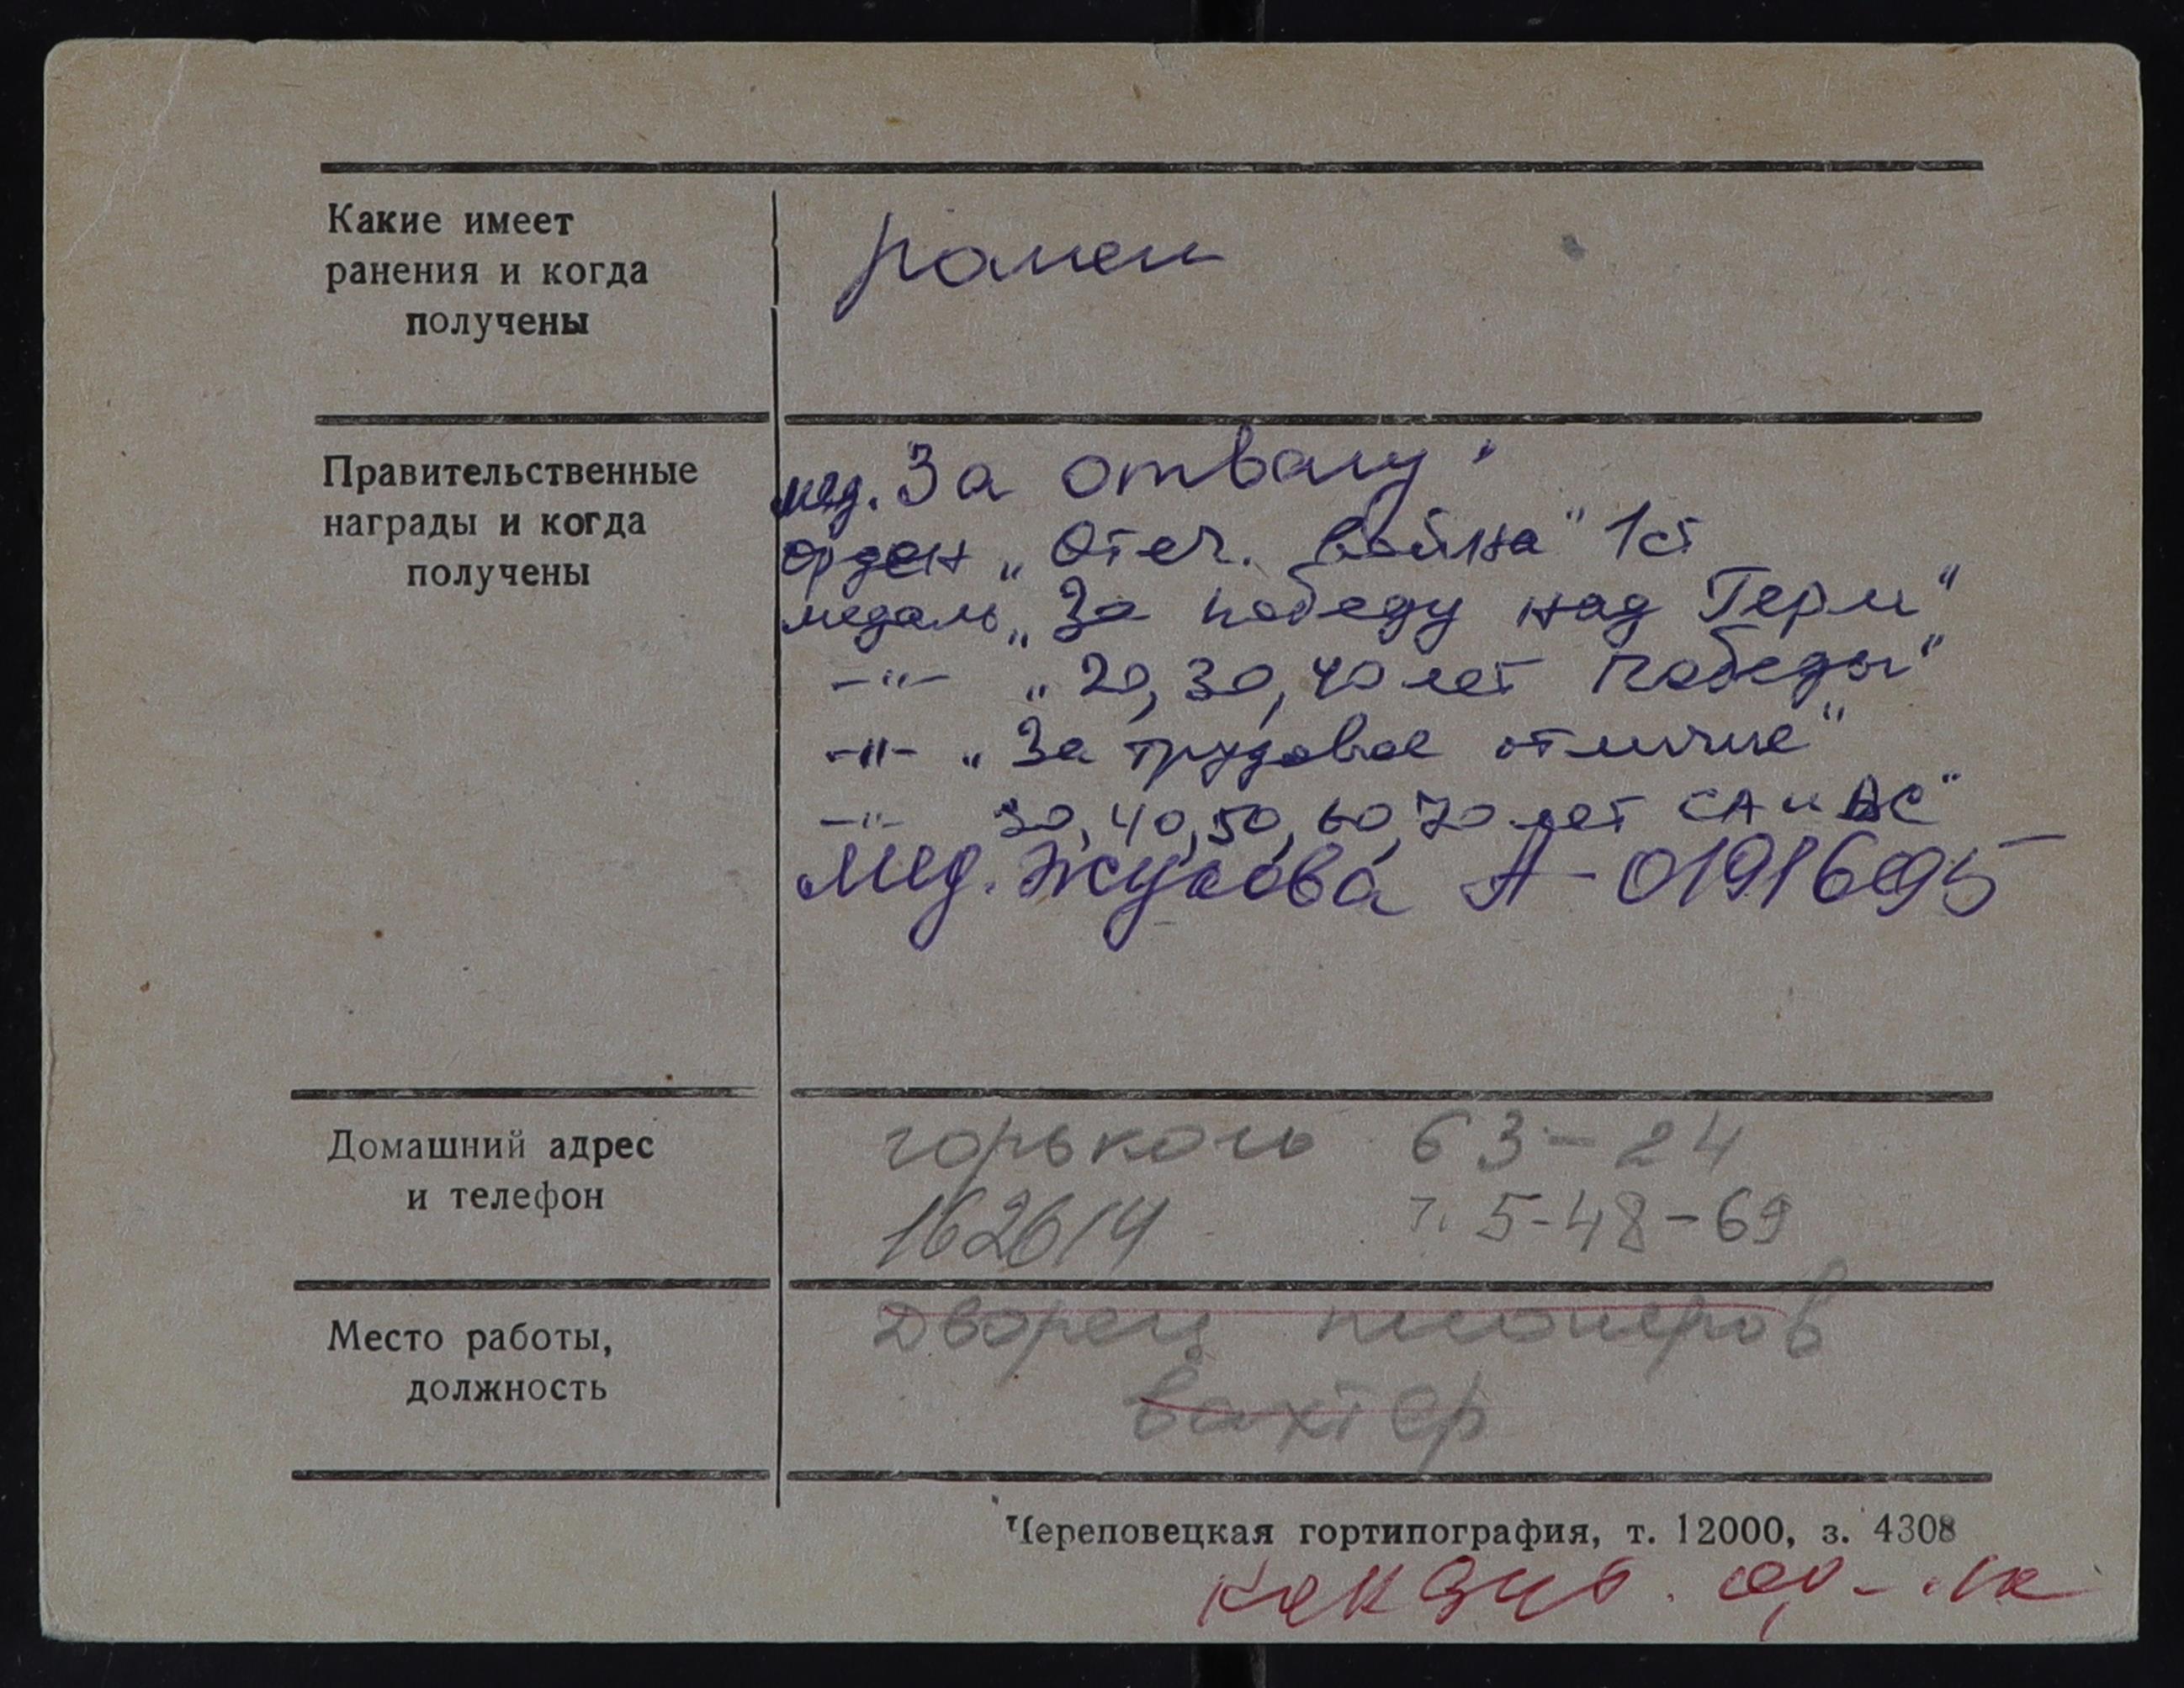 Какие имеет
ранения и когда
получены
ранен
Правительственные
награды и когда
получены
мед. За отвагу"
орден „Отеч. война" 1 ст
медаль „За победу над Герм"
-"- „20, 30, 40 лет победы"
-"- „За трудовое отличие"
-"- 30, 40, 50, 60, 70 лет СА и ВС"
Мед. Жукова А-0191695
Домашний адрес
и телефон
горького 63-24
162614 т. 5-48-69
Место работы,
должность
Дворец пионеров
вахтер
Череповецкая гортипография, т. 12000, з. 4308